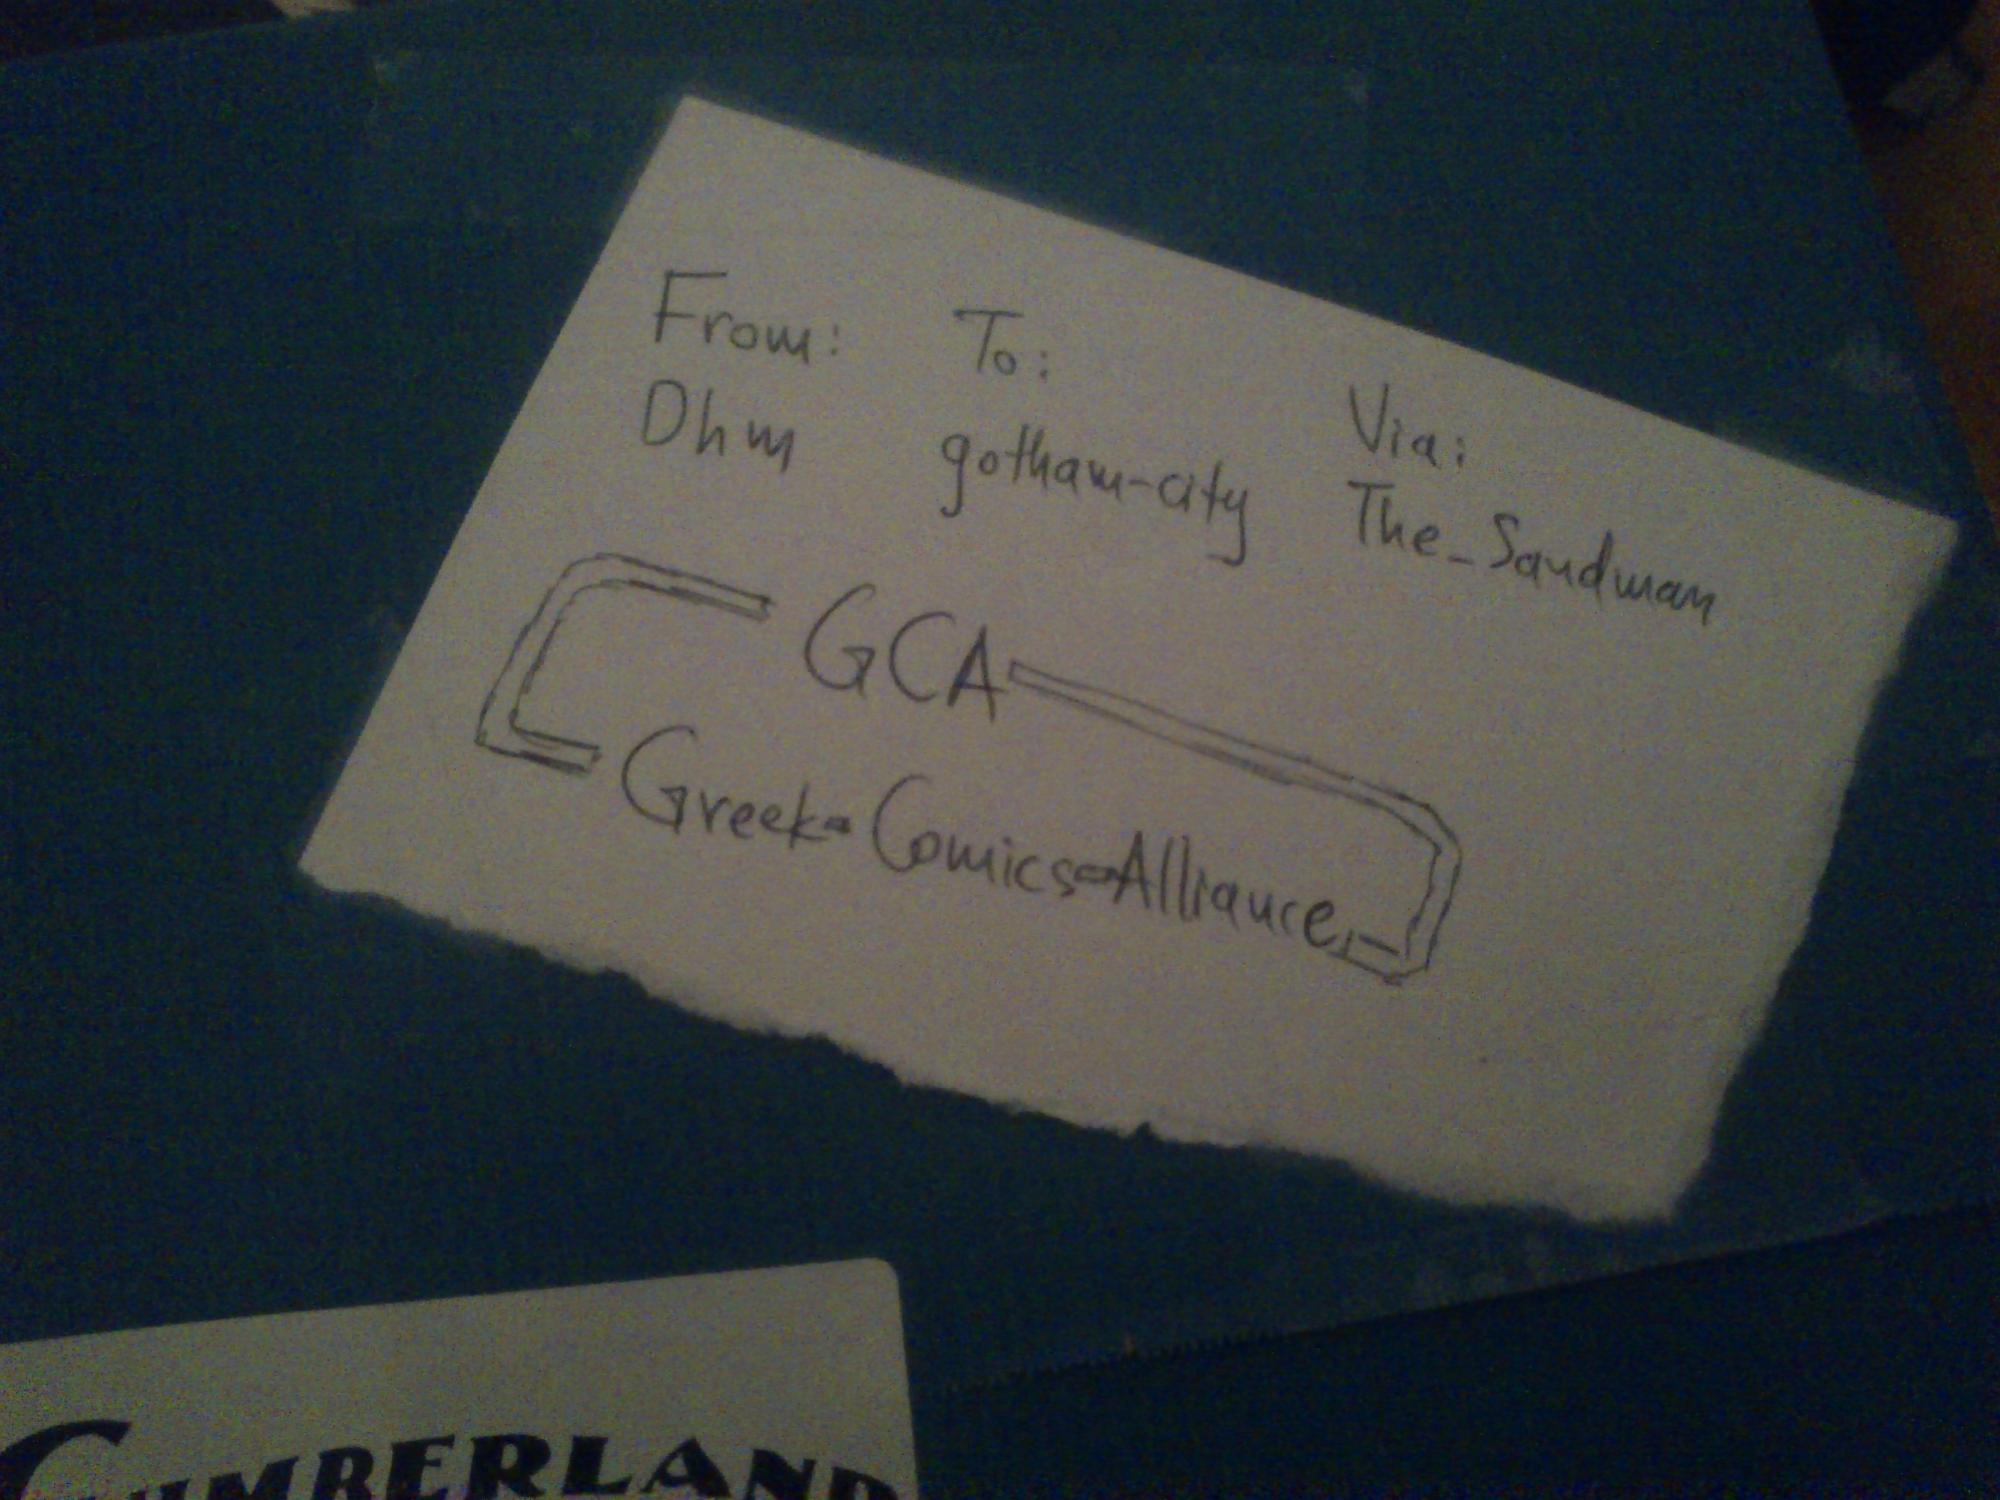 From: To: Via:
Dhm gotham-city The_Sandman
GCA
Greek-Comics-Alliance
CUMBERLAND